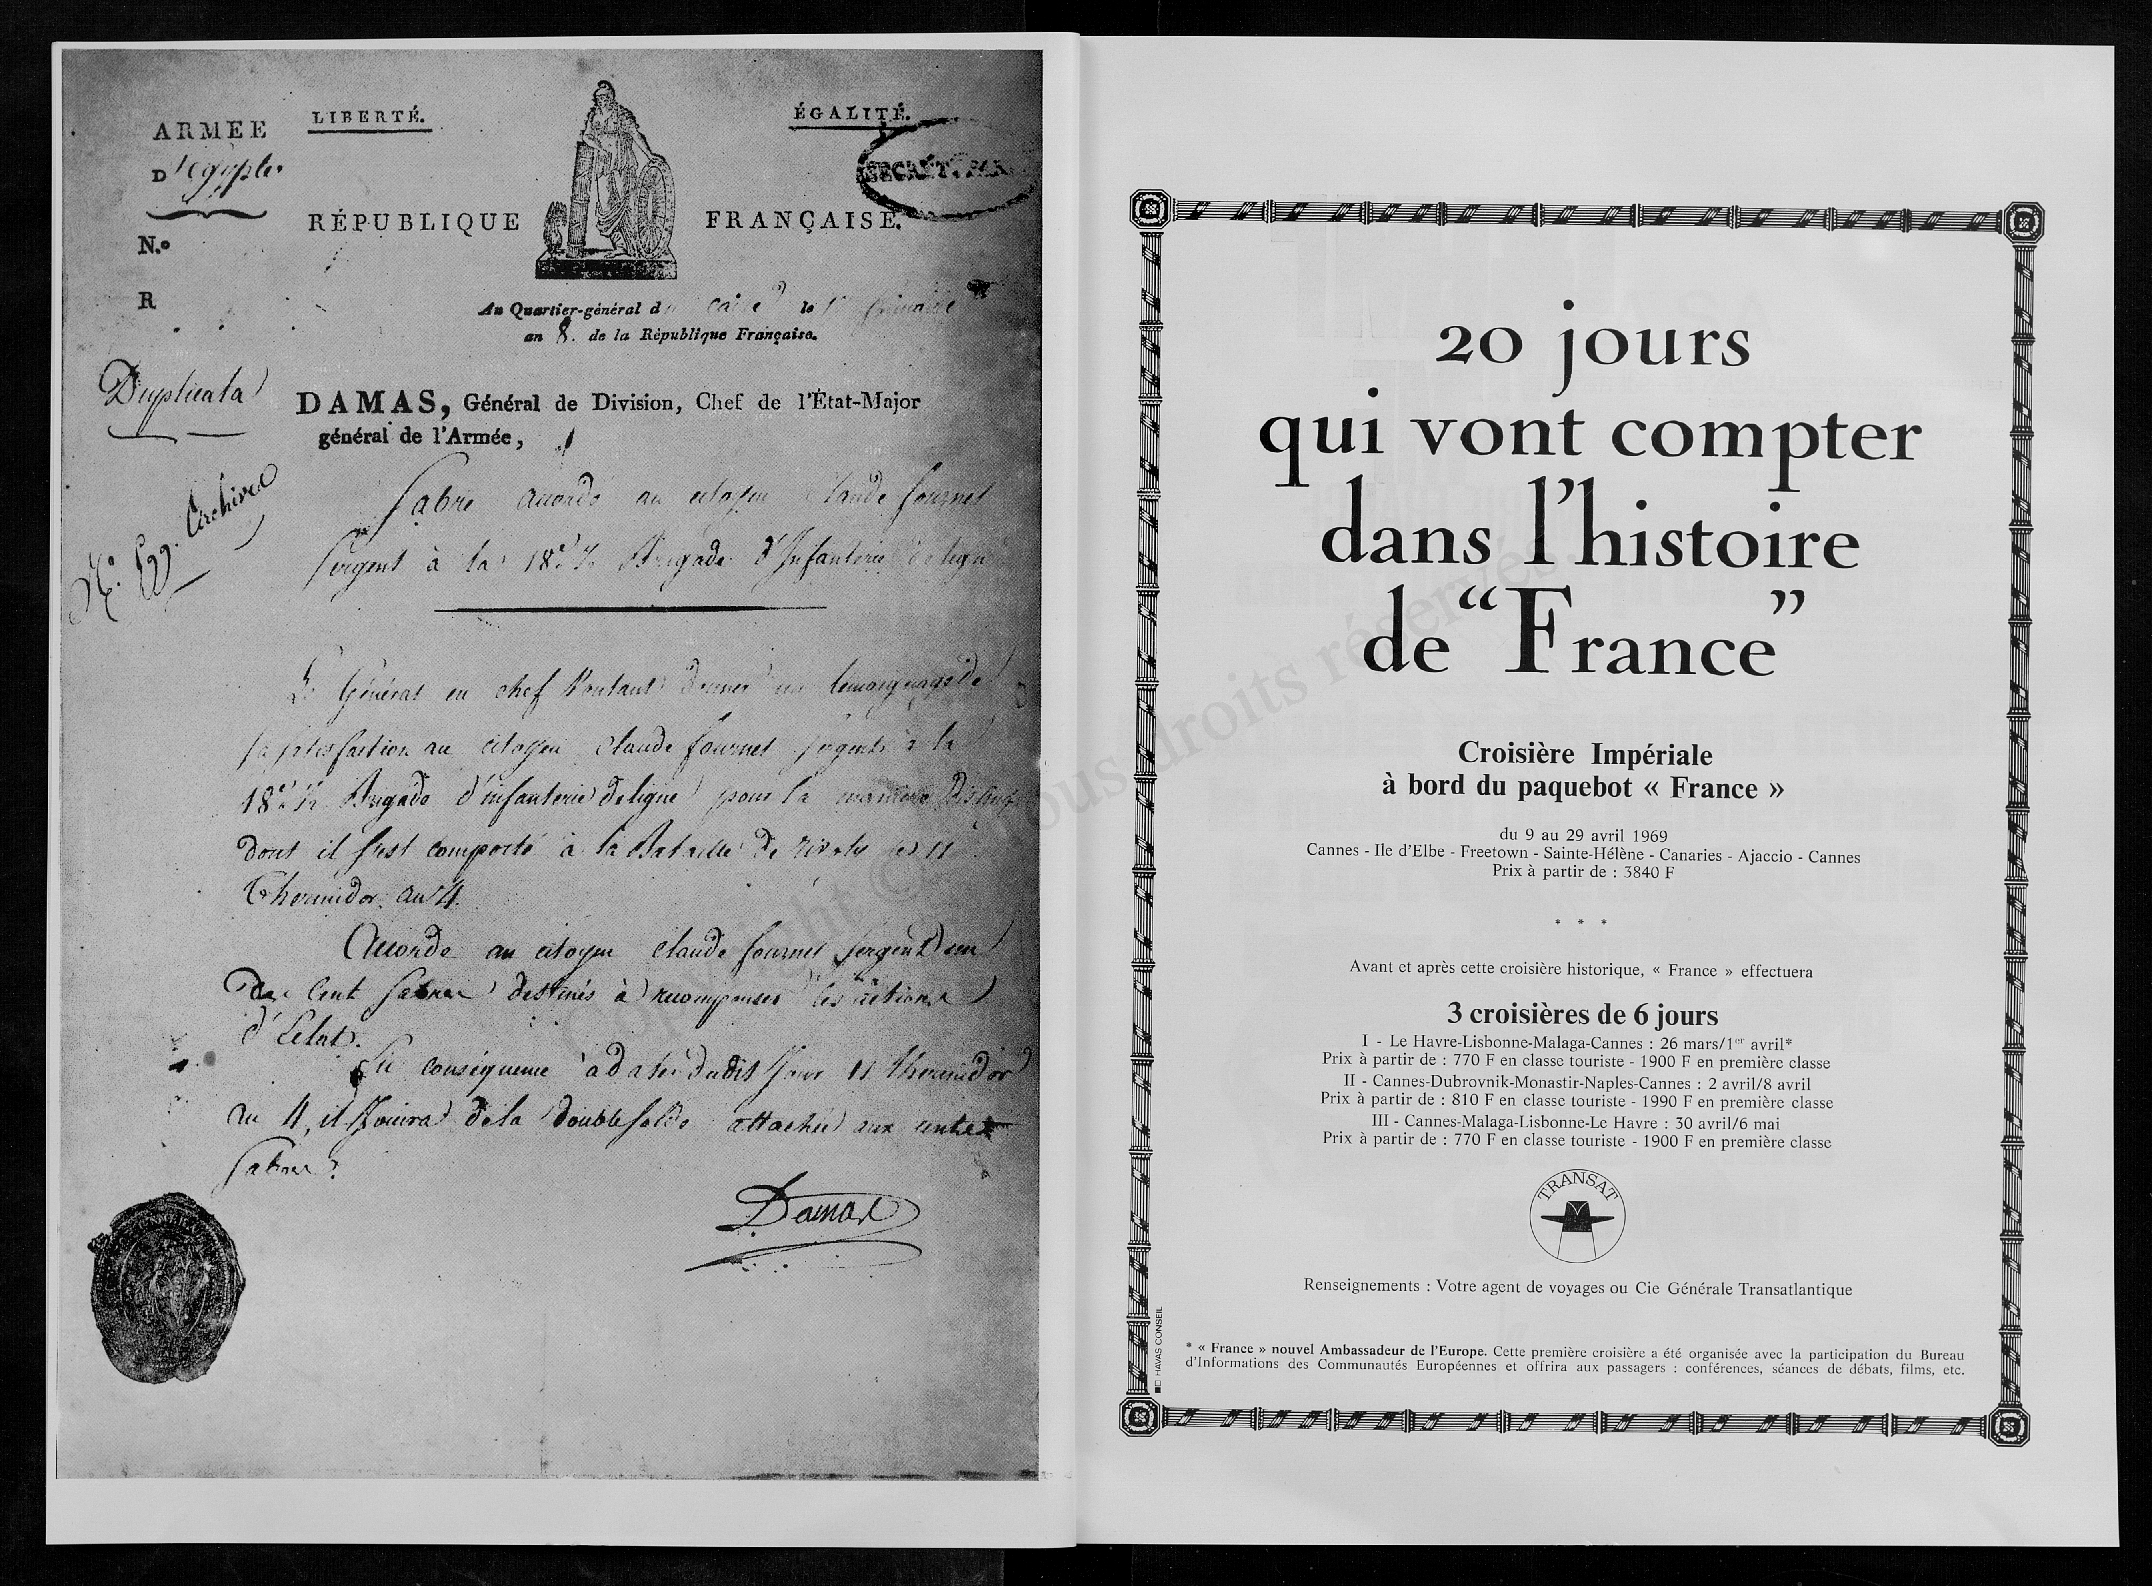 ARMEE
D'Egypte
N.o
R
LIBERTÉ.
ÉGALITÉ.
RÉPUBLIQUE FRANÇAISE.
Au Quartier-général du Caire le
an 8. de la République Française.
Duplicata
DAMAS, Général de Division, Chef de l'État-Major
général de l'Armée,
Archives
Sabre accordé au citoyen Claude fournet
Sergent à la 18e Brigade d'Infanterie de ligne
Le Général en chef Voulant donner un témoignage de
Sa satisfaction au citoyen Claude fournet sergent à la
18e Brigade d'infanterie de ligne pour la manière
dont il s'est comporté à la Bataille de rivoly le 11
Thermidor an 4.
Accorde au citoyen Claude fournet sergent un
des Cent Sabres destinés à récompenser les actions
d'Eclat.
En conséquence à dater dudit Jour 11 thermidor
an 4, il Jouira de la double solde attachée aux cents
Sabres.
Damas
20 jours
qui vont compter
dans l'histoire
de “France”
Croisière Impériale
à bord du paquebot « France »
du 9 au 29 avril 1969
Cannes - Ile d'Elbe - Freetown - Sainte-Hélène - Canaries - Ajaccio - Cannes
Prix à partir de : 3840 F
* * *
Avant et après cette croisière historique, « France » effectuera
3 croisières de 6 jours
I - Le Havre-Lisbonne-Malaga-Cannes : 26 mars/1er avril*
Prix à partir de : 770 F en classe touriste - 1900 F en première classe
II - Cannes-Dubrovnik-Monastir-Naples-Cannes : 2 avril/8 avril
Prix à partir de : 810 F en classe touriste - 1990 F en première classe
III - Cannes-Malaga-Lisbonne-Le Havre : 30 avril/6 mai
Prix à partir de : 770 F en classe touriste - 1900 F en première classe
TRANSAT
Renseignements : Votre agent de voyages ou Cie Générale Transatlantique
HAVAS CONSEIL
* « France » nouvel Ambassadeur de l'Europe. Cette première croisière a été organisée avec la participation du Bureau
d'Informations des Communautés Européennes et offrira aux passagers : conférences, séances de débats, films, etc.
Copyright © Tous droits réservés